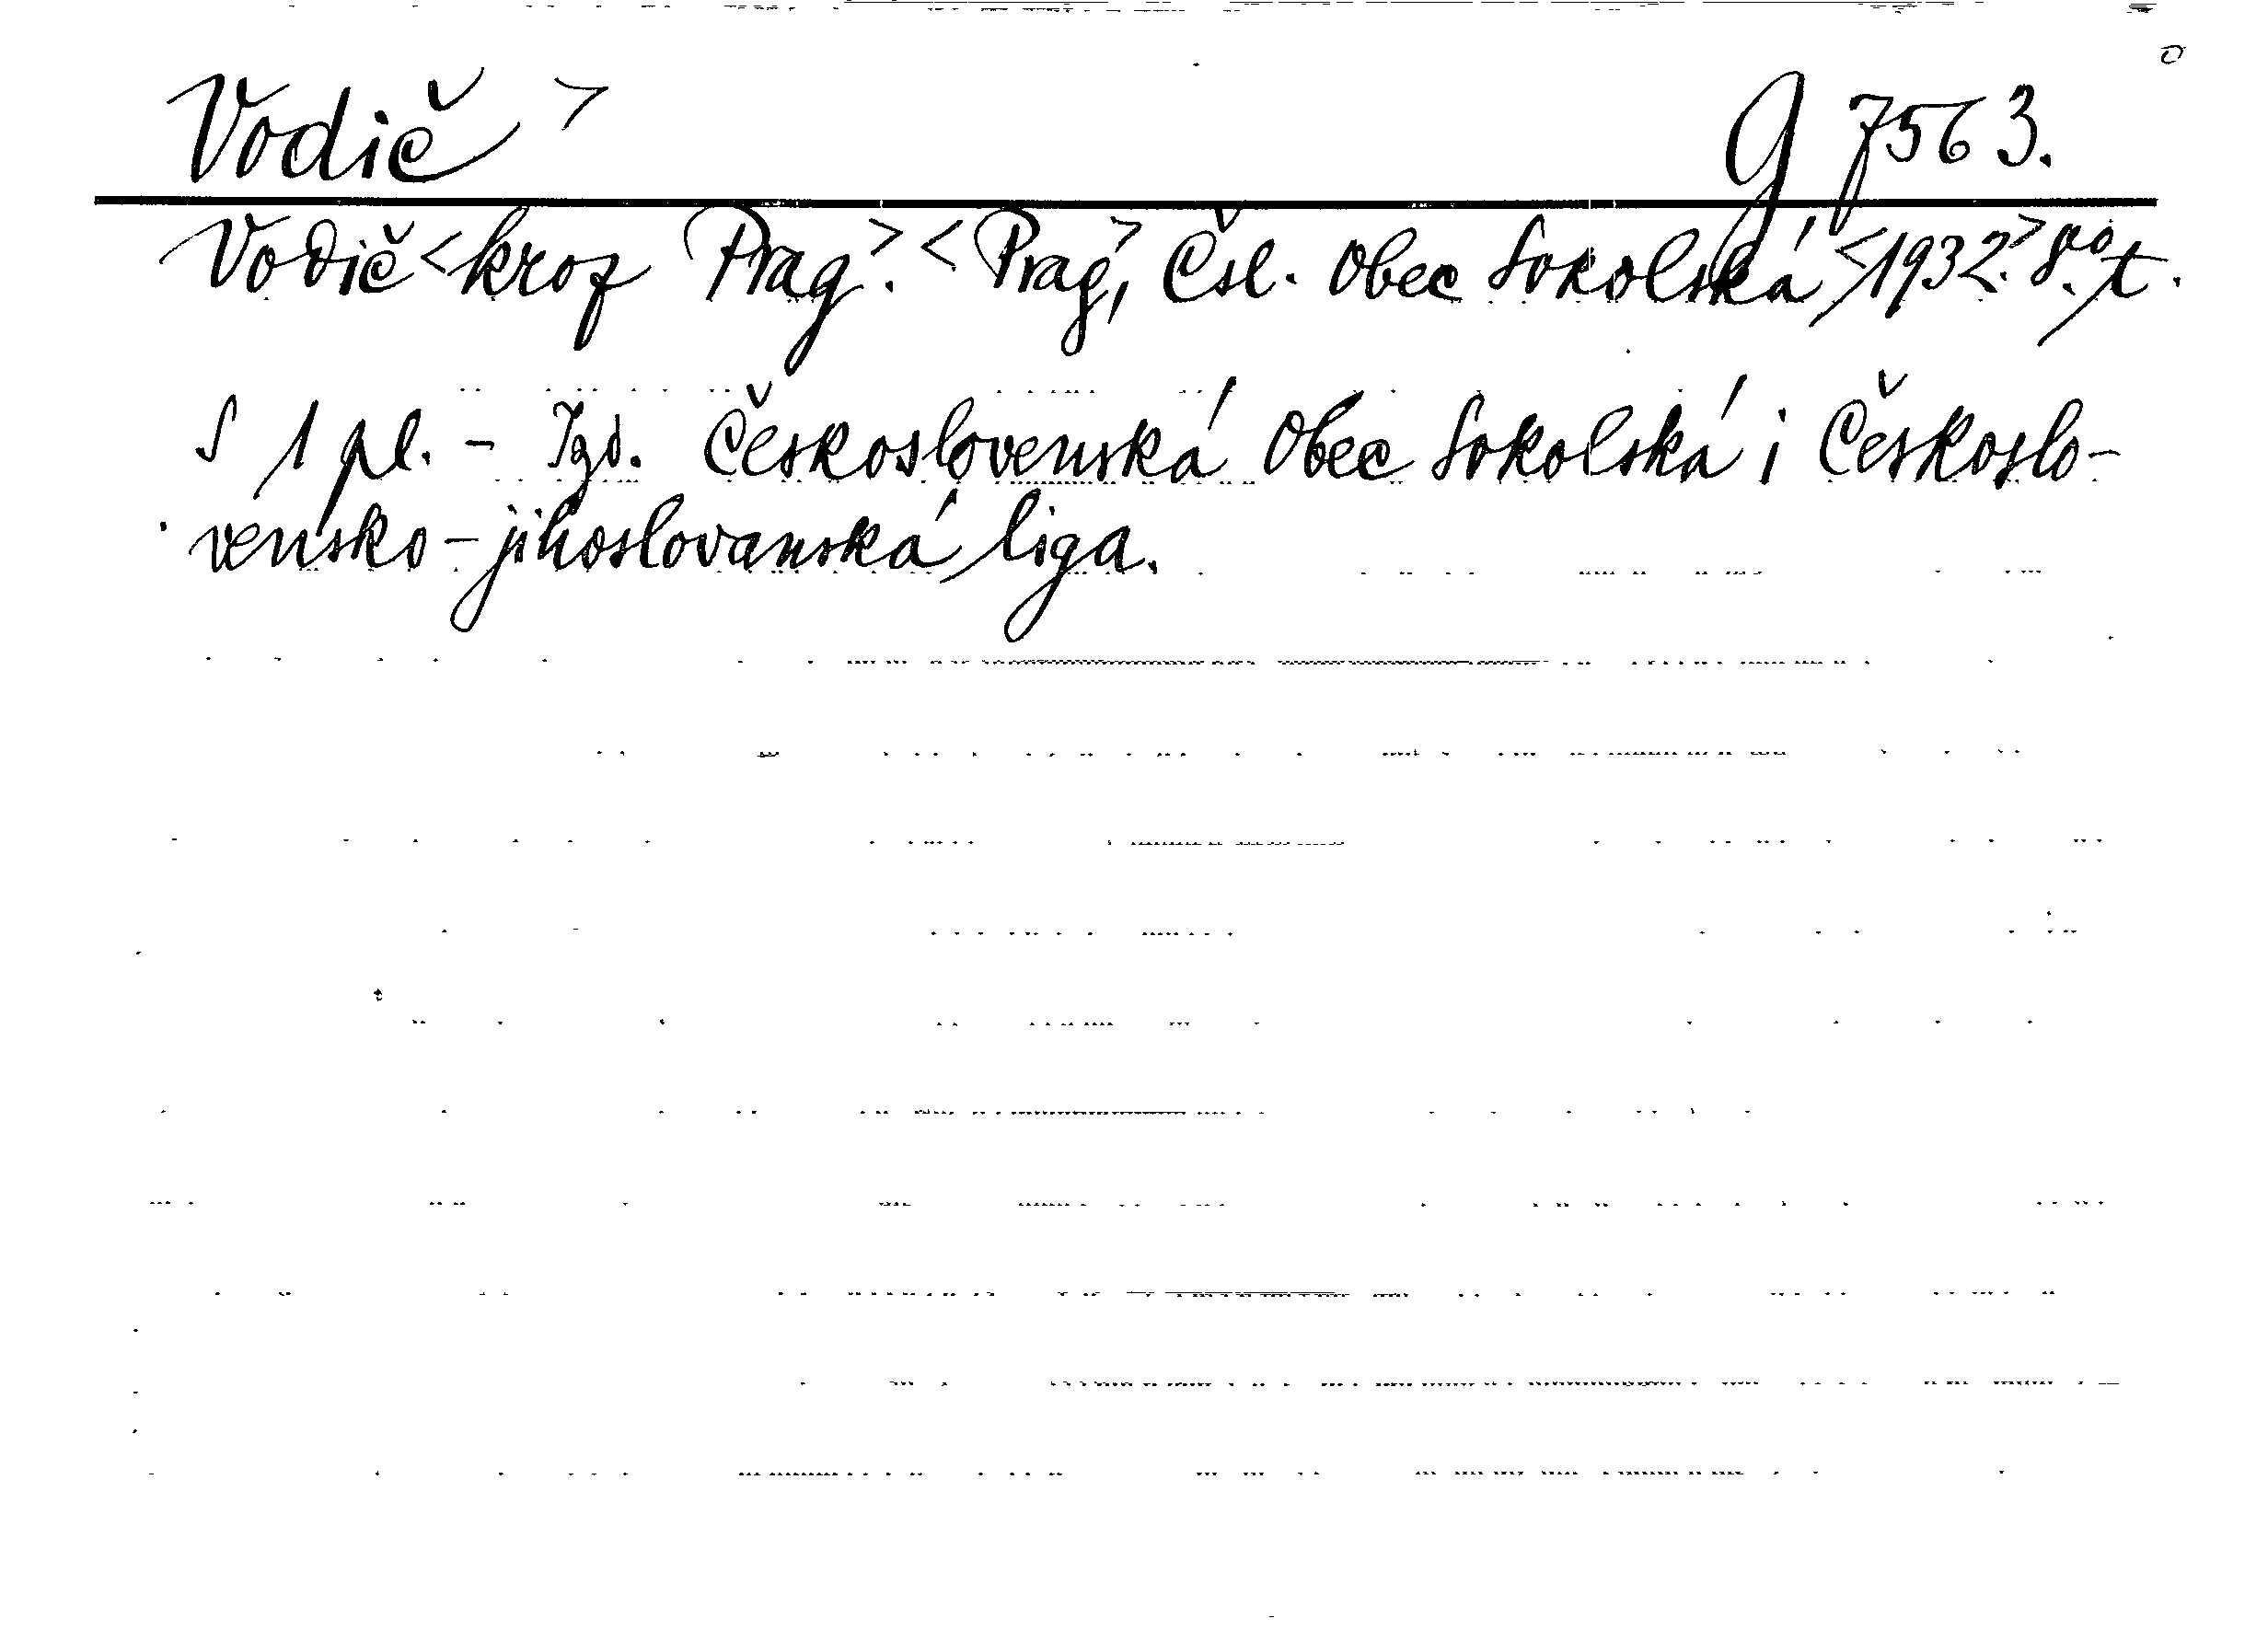 Vodič > g 7563.
Vodič <kroz Prag.> <Prag>, Čsl. Obec Sokolská, <1932.> 8.vo t.
S 1 pl. - Izd. Československá Obec Sokolská i Českoslo-
vensko-jihoslovanská liga.